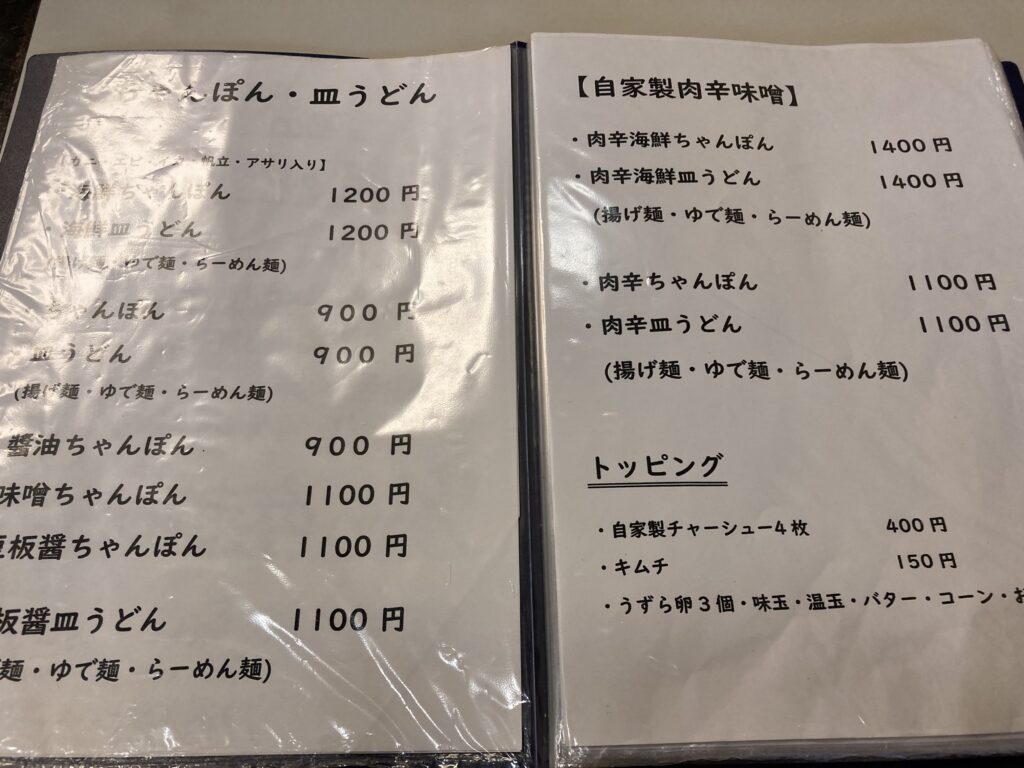 ちゃんぽん・皿うどん
【カニ・エビ・イカ・帆立・アサリ入り】
・海鮮ちゃんぽん 1200 円
・海鮮皿うどん 1200 円
(揚げ麺・ゆで麺・らーめん麺)
ちゃんぽん 900 円
皿うどん 900 円
(揚げ麺・ゆで麺・らーめん麺)
醬油ちゃんぽん 900 円
味噌ちゃんぽん 1100 円
板醤ちゃんぽん 1100 円
板醤皿うどん 1100 円
麺・ゆで麺・らーめん麺)
【自家製肉辛味噌】
・肉辛海鮮ちゃんぽん 1400 円
・肉辛海鮮皿うどん 1400 円
(揚げ麺・ゆで麺・らーめん麺)
・肉辛ちゃんぽん 1100 円
・肉辛皿うどん 1100 円
(揚げ麺・ゆで麺・らーめん麺)
トッピング
・自家製チャーシュー4 枚 400 円
・キムチ 150 円
・うずら卵 3 個・味玉・温玉・バター・コーン・